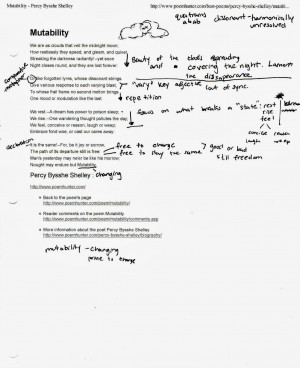 Mutability - Percy Bysshe Shelley
quatrains
abab
dissonant - harmonically
unresolved
Mutability
We are as clouds that veil the midnight moon;
How restlessly they speed, and gleam, and quiver,
Streaking the darkness radiantly!--yet soon
Night closes round, and they are lost forever:
Beauty of the clouds
and covering the night. Lament
the disappearance
Or like forgotten lyres, whose dissonant strings
Give various response to each varying blast,
To whose frail frame no second motion brings
One mood or modulation like the last.
"vary" key adjective
out of sync.
repetition
We rest.--A dream has power to poison sleep;
We rise.--One wandering thought pollutes the day;
We feel, conceive or reason, laugh or weep;
Embrace fond woe, or cast our cares away:
focus on what breaks a "state": rest
rise
feel
conceive reason
laugh weep
declaration
It is the same!--For, be it joy or sorrow,
The path of its departure still is free:
Man's yesterday may ne'er be like his morrow;
Nought may endure but Mutability.
free to change
free to stay the same
good or bad
still freedom
changing
Percy Bysshe Shelley
http://www.poemhunter.com/
Back to the poem's page
Reader comments on the poem Mutability
http://www.poemhunter.com/poem/mutability/comments.asp
More information about the poet Percy Bysshe Shelley
http://www.poemhunter.com/percy-bysshe-shelley/biography/
mutability - changing
prone to change